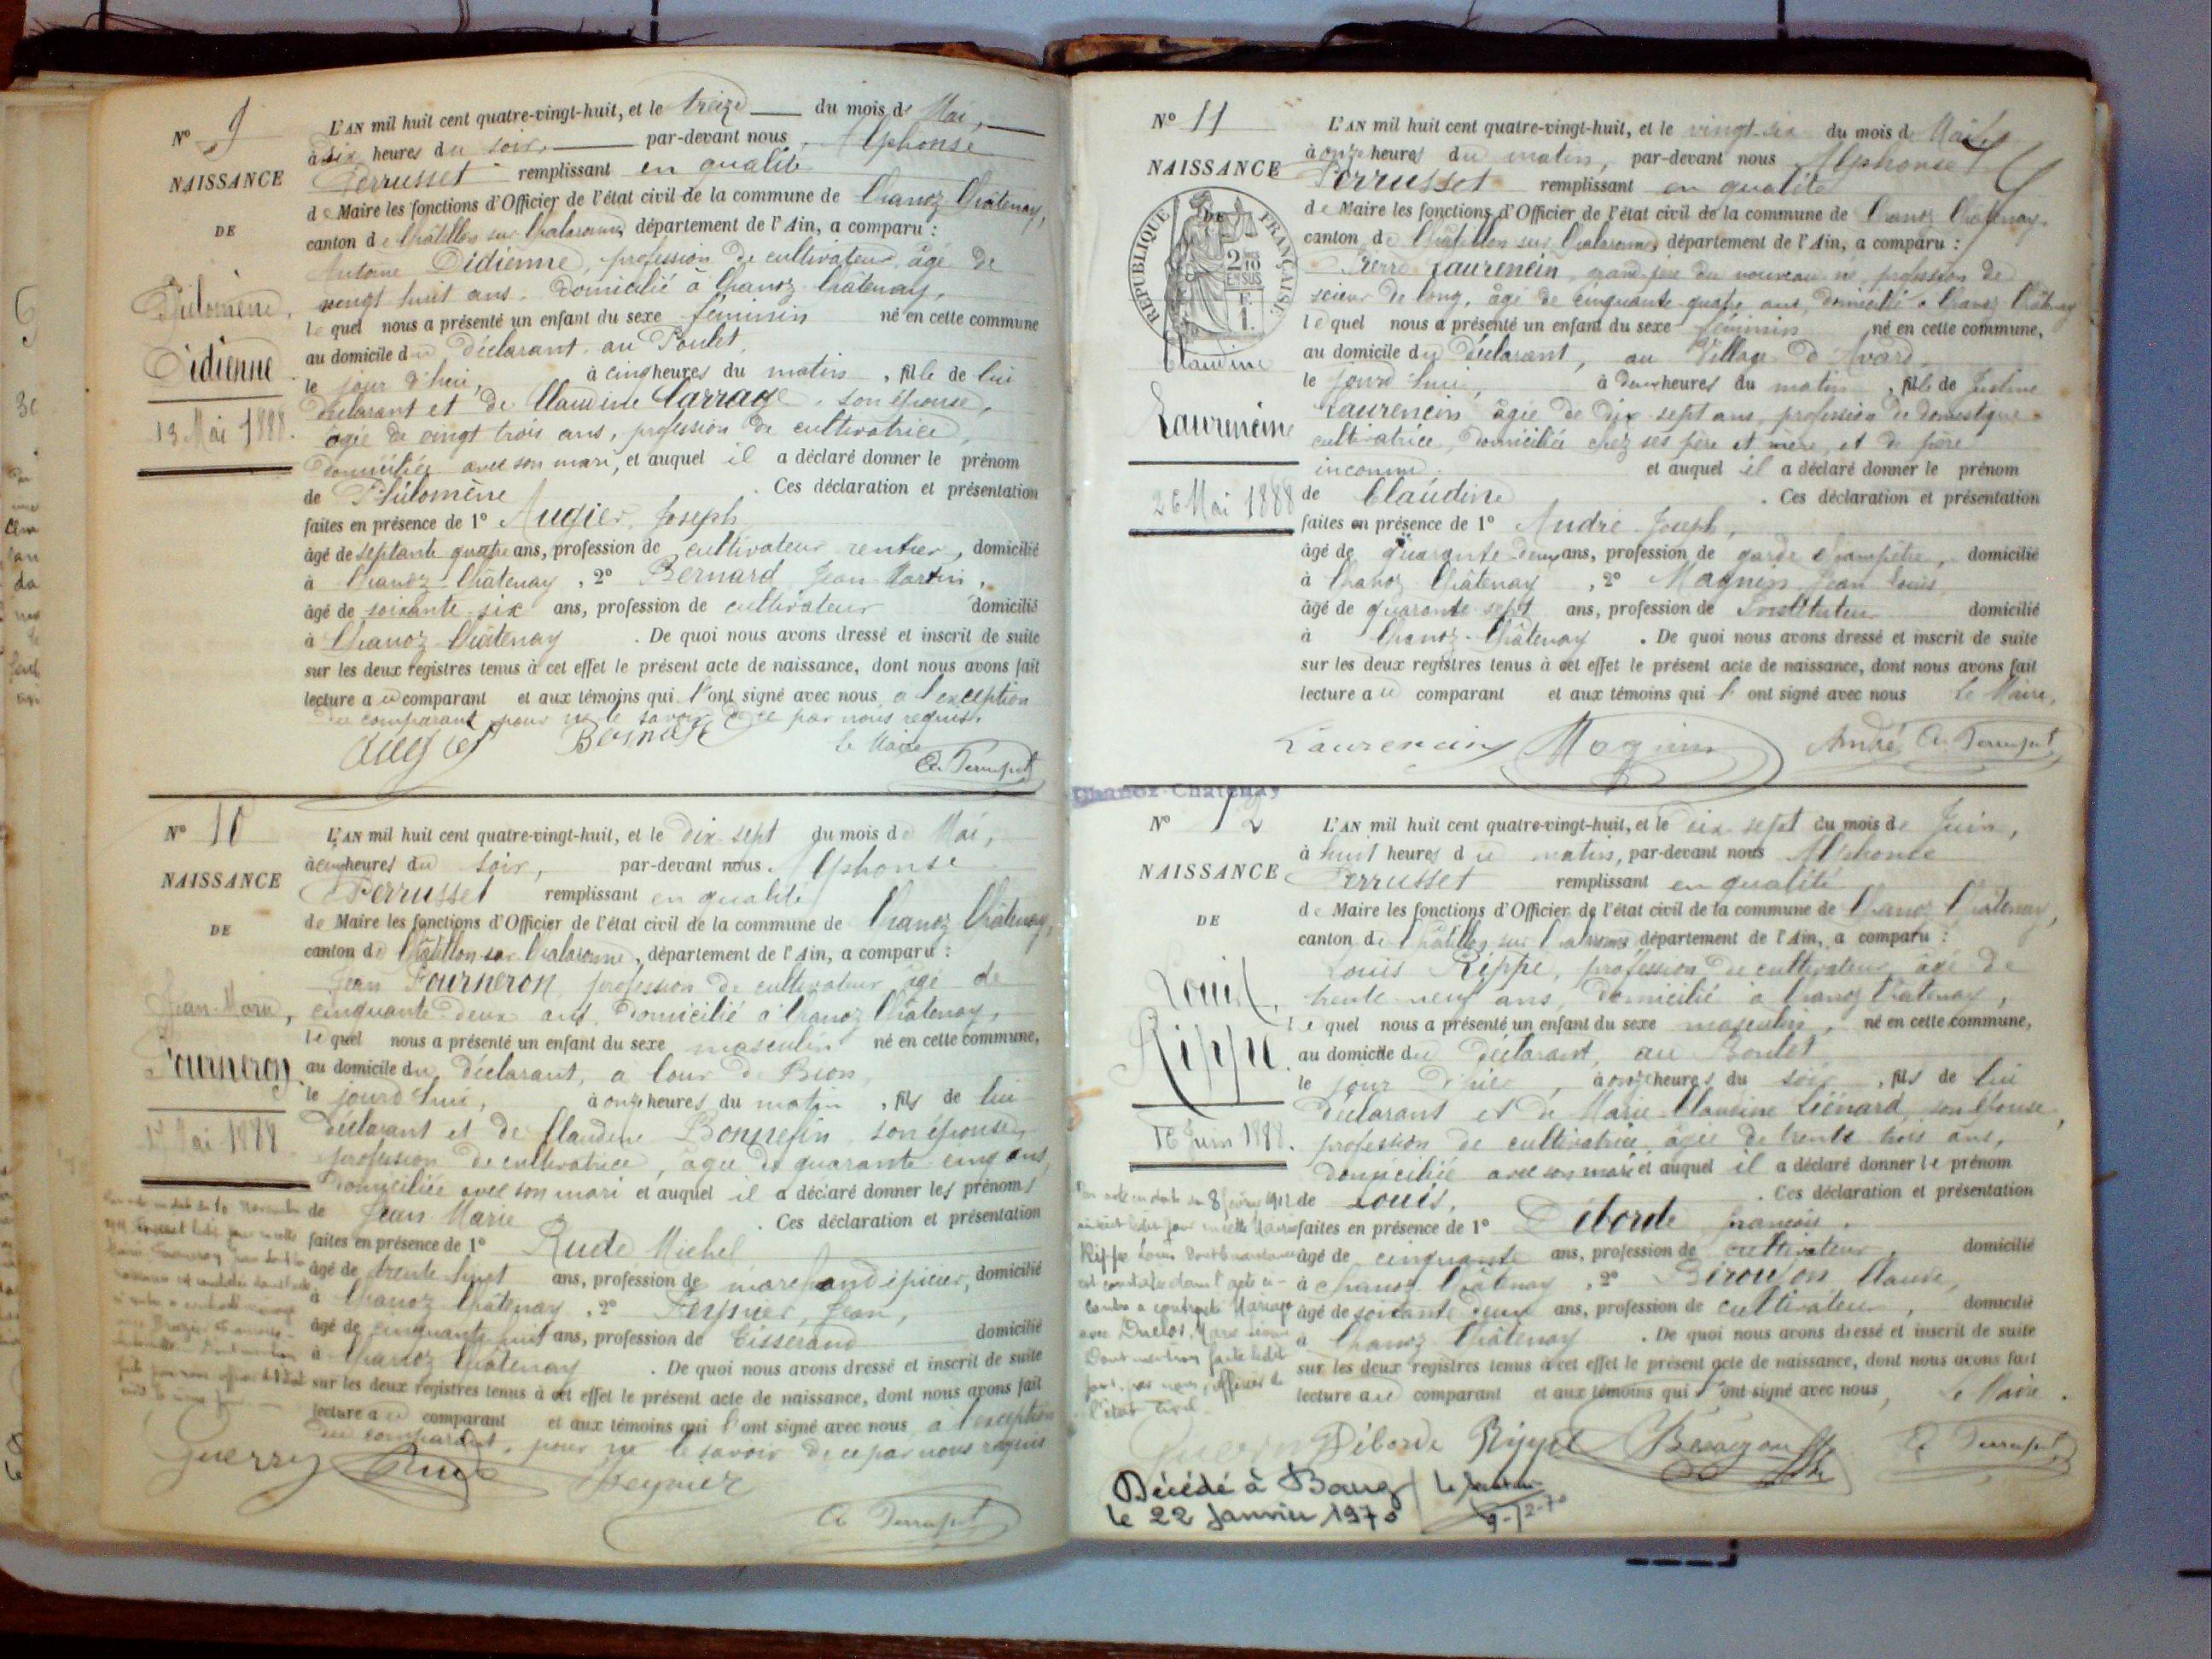 N° 9
NAISSANCE
DE
Philomène,
Didienne
13 Mai 1888.
L'AN mil huit cent quatre-vingt-huit, et le treize du mois de Mai,
à six heures du soir, par-devant nous, Alphonse
Perrusset remplissant en qualité
de Maire les fonctions d'Officier de l'état civil de la commune de Chanoz Châtenay,
canton de Châtillon sur Chalaronne, département de l'Ain, a comparu :
Antoine Didienne, profession de cultivateur, âgé de
vingt huit ans, domicilié à Chanoz Châtenay,
lequel nous a présenté un enfant du sexe féminin né en cette commune
au domicile du déclarant, au Poulet,
le jour d'hui, à cinq heures du matin, fille de lui
déclarant et de Claudine Carrage, son épouse,
âgée de vingt trois ans, profession de cultivatrice,
domiciliée avec son mari, et auquel il a déclaré donner le prénom
de Philomène. Ces déclaration et présentation
faites en présence de 1° Augier, Joseph
âgé de septante quatre ans, profession de cultivateur rentier, domicilié
à Chanoz-Châtenay, 2° Bernard Jean Martin,
âgé de soixante-six ans, profession de cultivateur domicilié
à Chanoz-Châtenay. De quoi nous avons dressé et inscrit de suite
sur les deux registres tenus à cet effet le présent acte de naissance, dont nous avons fait
lecture au comparant et aux témoins qui l'ont signé avec nous, à l'exception
du comparant pour ne le savoir de ce par nous requis.
Augier Bernard le Maire
A. Perrusset
N° 10
NAISSANCE
DE
Jean-Marie,
Fourneron
17 Mai 1888
L'AN mil huit cent quatre-vingt-huit, et le dix sept du mois de Mai,
à cinq heures du soir, par-devant nous, Alphonse
Perrusset remplissant en qualité
de Maire les fonctions d'Officier de l'état civil de la commune de Chanoz Châtenay,
canton de Châtillon-sur-Chalaronne, département de l'Ain, a comparu :
Jean Fourneron, profession de cultivateur âgé de
cinquante-deux ans, domicilié à Chanoz Châtenay,
lequel nous a présenté un enfant du sexe masculin né en cette commune,
au domicile du déclarant, à Cour de Bion,
le jourd'hui, à onze heures du matin, fils de lui
déclarant et de Claudine Bonnefin, son épouse,
profession de cultivatrice, âgée de quarante-cinq ans,
domiciliée avec son mari et auquel il a déclaré donner les prénoms
de Jean Marie. Ces déclaration et présentation
faites en présence de 1° Rude Michel
âgé de trente huit ans, profession de marchand épicier, domicilié
à Chanoz Châtenay, 2° Peysner, Jean,
âgé de cinquante huit ans, profession de Tisserand domicilié
à Chanoz Châtenay. De quoi nous avons dressé et inscrit de suite
sur les deux registres tenus à cet effet le présent acte de naissance, dont nous avons fait
lecture au comparant et aux témoins qui l'ont signé avec nous, à l'exception
du comparant, pour ne le savoir de ce par nous requis
Guerry Rude
A. Perrusset
N° 11
NAISSANCE
DE
RÉPUBLIQUE FRANÇAISE
Claudine
Laurencin
26 Mai 1888
L'AN mil huit cent quatre-vingt-huit, et le vingt-six du mois de Mai,
à onze heures du matin, par-devant nous Alphonse
Perrusset remplissant en qualité
de Maire les fonctions d'Officier de l'état civil de la commune de Chanoz Châtenay,
canton de Châtillon sur Chalaronne, département de l'Ain, a comparu :
Pierre Laurencin, grand-père du nouveau né, profession de
scieur de long, âgé de cinquante-quatre ans, domicilié à Chanoz Châtenay
lequel nous a présenté un enfant du sexe féminin né en cette commune,
au domicile du déclarant, au Village d'Avard,
le jourd'hui, à deux heures du matin, fille de Justine
Laurencin âgée de dix-sept ans, profession de domestique
cultivatrice, domiciliée chez ses père et mère, et de père
inconnu. et auquel il a déclaré donner le prénom
de Claudine. Ces déclaration et présentation
faites en présence de 1° André Joseph,
âgé de quarante-deux ans, profession de garde champêtre, domicilié
à Chanoz Châtenay, 2° Magnin Jean Louis
âgé de quarante sept ans, profession de Instituteur domicilié
à Chanoz-Châtenay. De quoi nous avons dressé et inscrit de suite
sur les deux registres tenus à cet effet le présent acte de naissance, dont nous avons fait
lecture au comparant et aux témoins qui l'ont signé avec nous le Maire,
Laurencin Magnin André A. Perrusset
Chanoz-Chatenay
N° 12
NAISSANCE
DE
Louis,
Rippe.
16 Juin 1888.
L'AN mil huit cent quatre-vingt-huit, et le dix-sept du mois de Juin,
à huit heures du matin, par-devant nous Alphonse
Perrusset remplissant en qualité
de Maire les fonctions d'Officier de l'état civil de la commune de Chanoz Châtenay,
canton de Châtillon sur Chalaronne département de l'Ain, a comparu :
Louis Rippe, profession de cultivateur âgé de
trente-neuf ans, domicilié à Chanoz Châtenay,
lequel nous a présenté un enfant du sexe masculin, né en cette commune,
au domicile du déclarant, au Boulet
le jour d'hier, à onze heures du soir, fils de lui
déclarant et de Marie-Claudine Liénard, son épouse,
profession de cultivatrice, âgée de trente trois ans,
domiciliée avec son mari et auquel il a déclaré donner le prénom
de Louis. Ces déclaration et présentation
faites en présence de 1° Déborde françois,
âgé de cinquante ans, profession de cultivateur, domicilié
à Chanoz Châtenay, 2° Béroujon Claude,
âgé de soixante deux ans, profession de cultivateur, domicilié
à Chanoz Châtenay. De quoi nous avons dressé et inscrit de suite
sur les deux registres tenus à cet effet le présent acte de naissance, dont nous avons fait
lecture au comparant et aux témoins qui l'ont signé avec nous, Le Maire.
Par acte en date du 8 février 1912
Rippe Louis dont la naissance
est constatée dans l'acte ci-
contre a contracté Mariage
avec Duclos, Marie
Dont mention faite ledit
jour, par nous, Officier de
l'état civil.
Guerry Déborde Rippe Béroujon A. Perrusset
Décédé à Bourg
le 22 Janvier 1970